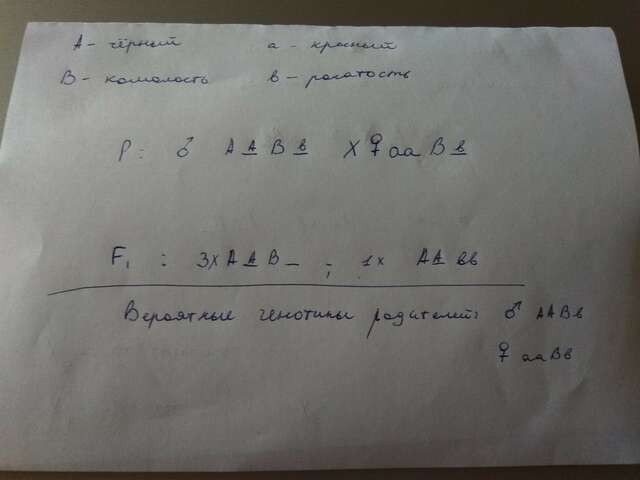 А - чёрный а - красный
В - комолость в - рогатость
P: ♂ А А В в X ♀ аа В в
F₁ : 3х А А В _ ; 1х АА вв
Вероятные генотипы родителей: ♂ ААВв
♀ ааВв